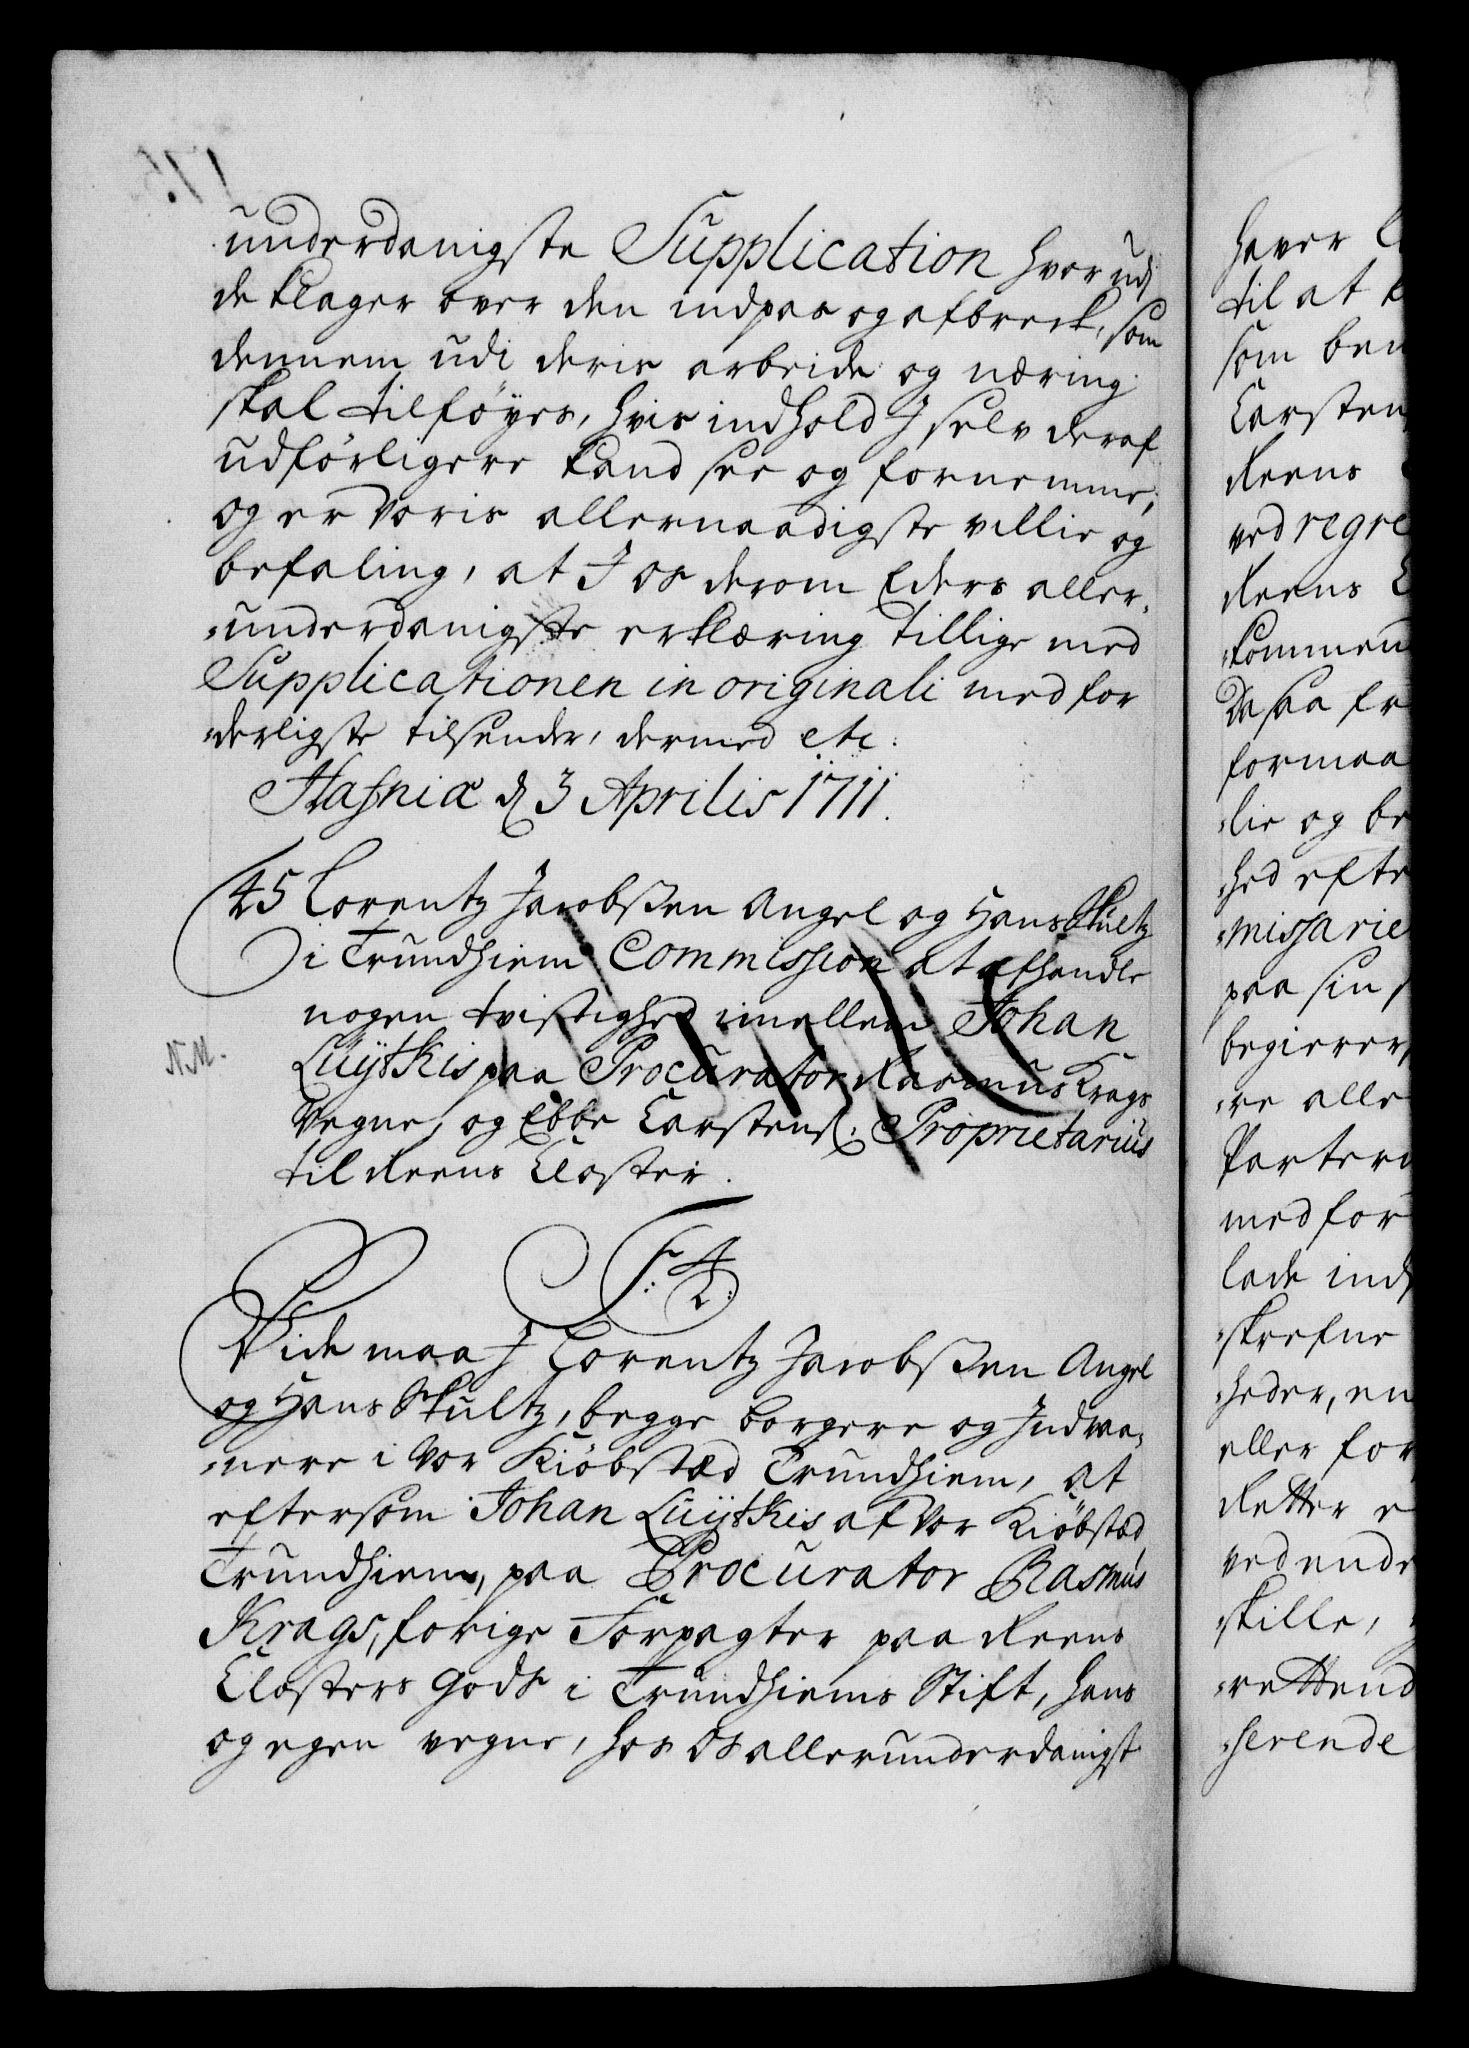 underdanigste Supplication hvorudi
de klager over den indpas og afbreck, som
dennem udi deris arbeide og næring
skal tilföyes, hvis indhold I selv deraf
udförligere kand see og fornemme,
og er Voris allernaadigste villie og
befaling, at I os derom Eders aller-
underdanigste erklæring tillige med
Supplicationen in originali med for
derligste tilsender, dermed etc:
Hafniæ d 3 Aprilis 1711.
45 Lorentz Jacobsen Angel og Hans Skultz
i Trundhiem Commission at afhandle
nogen tvistighed imellem Johan
Lüÿtkis paa Procurator Rasmus Krags
Vegne, og Ebbe Carstens: Proprietarius
til Reens Closter.
F: 4
Vide maa I Lorentz Jacobsen Angel
og Hans Skultz, begge borgere og Indvaa-
nere i Vor Kiöbstæd Trundhiem, at
eftersom Johan Lüÿtkis af Vor Kiöbstæd
Trundhiem, paa Procurator Rasmus
Krags, forige Forpagter paa Reens
Closters Gods i Trundhiems Stift, hans
og egen vegne, hos Os allerunderdanigst
haver
til at
som ben
Carsten
Reens
ved regre
Reens
kommen
Da saa
formaa
lie og be
hed efte
missarie
paa sin
begierer
re alle
Parter
med for
lade ind
skrefne
heder, en
eller for
Retter e
ved ende
skille,
rettend
serende